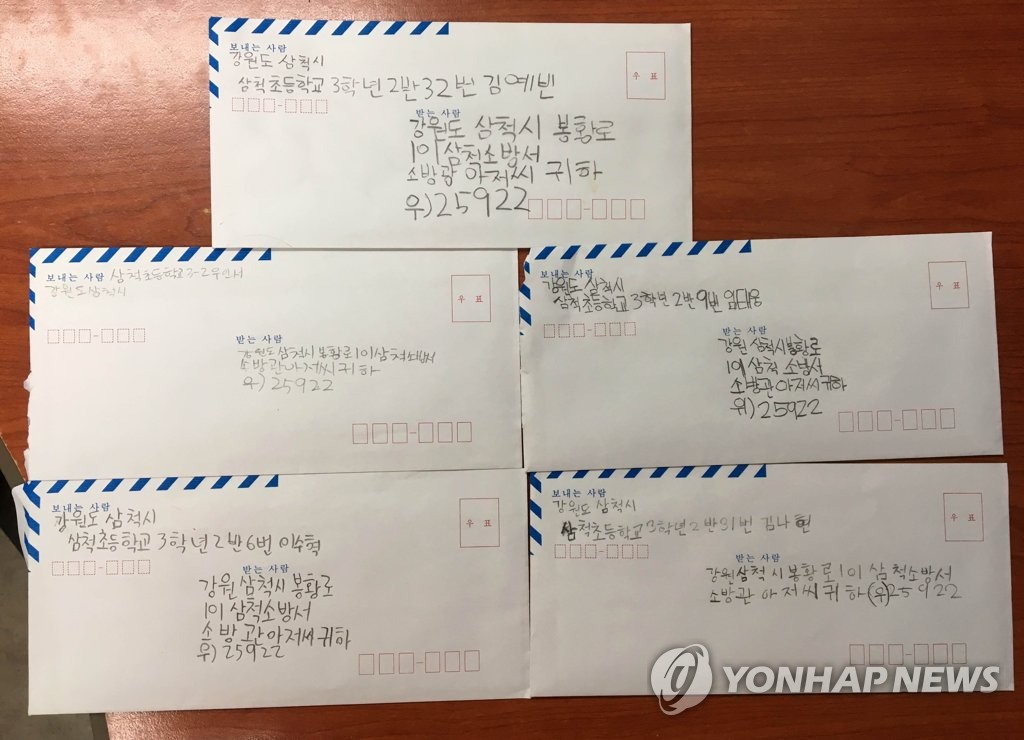 보내는 사람
강원도 삼척시
삼척초등학교 3학년 2반 32번 김예빈
우 표
받는 사람
강원도 삼척시 봉황로
101 삼척소방서
소방관 아저씨 귀하
우) 25922
보내는 사람 삼척초등학교 3-2 우인서
강원도 삼척시
우 표
받는 사람
강원도 삼척시 봉황로 101 삼척소방서
소방관 아저씨 귀하
우) 25922
보내는 사람
강원도 삼척시
삼척초등학교 3학년 2반 9번 임태웅
우 표
받는 사람
강원 삼척시 봉황로
101 삼척 소방서
소방관 아저씨 귀하
위) 25922
보내는 사람
강원도 삼척시
삼척초등학교 3학년 2반 6번 이수혁
우 표
받는 사람
강원 삼척시 봉황로
101 삼척소방서
소방관 아저씨 귀하
우) 25922
보내는 사람
강원도 삼척시
삼척초등학교 3학년 2반 31번 김나현
우 표
받는 사람
강원 삼척시 봉황로 101 삼척소방서
소방관 아저씨 귀하 (우) 25922
YONHAP NEWS